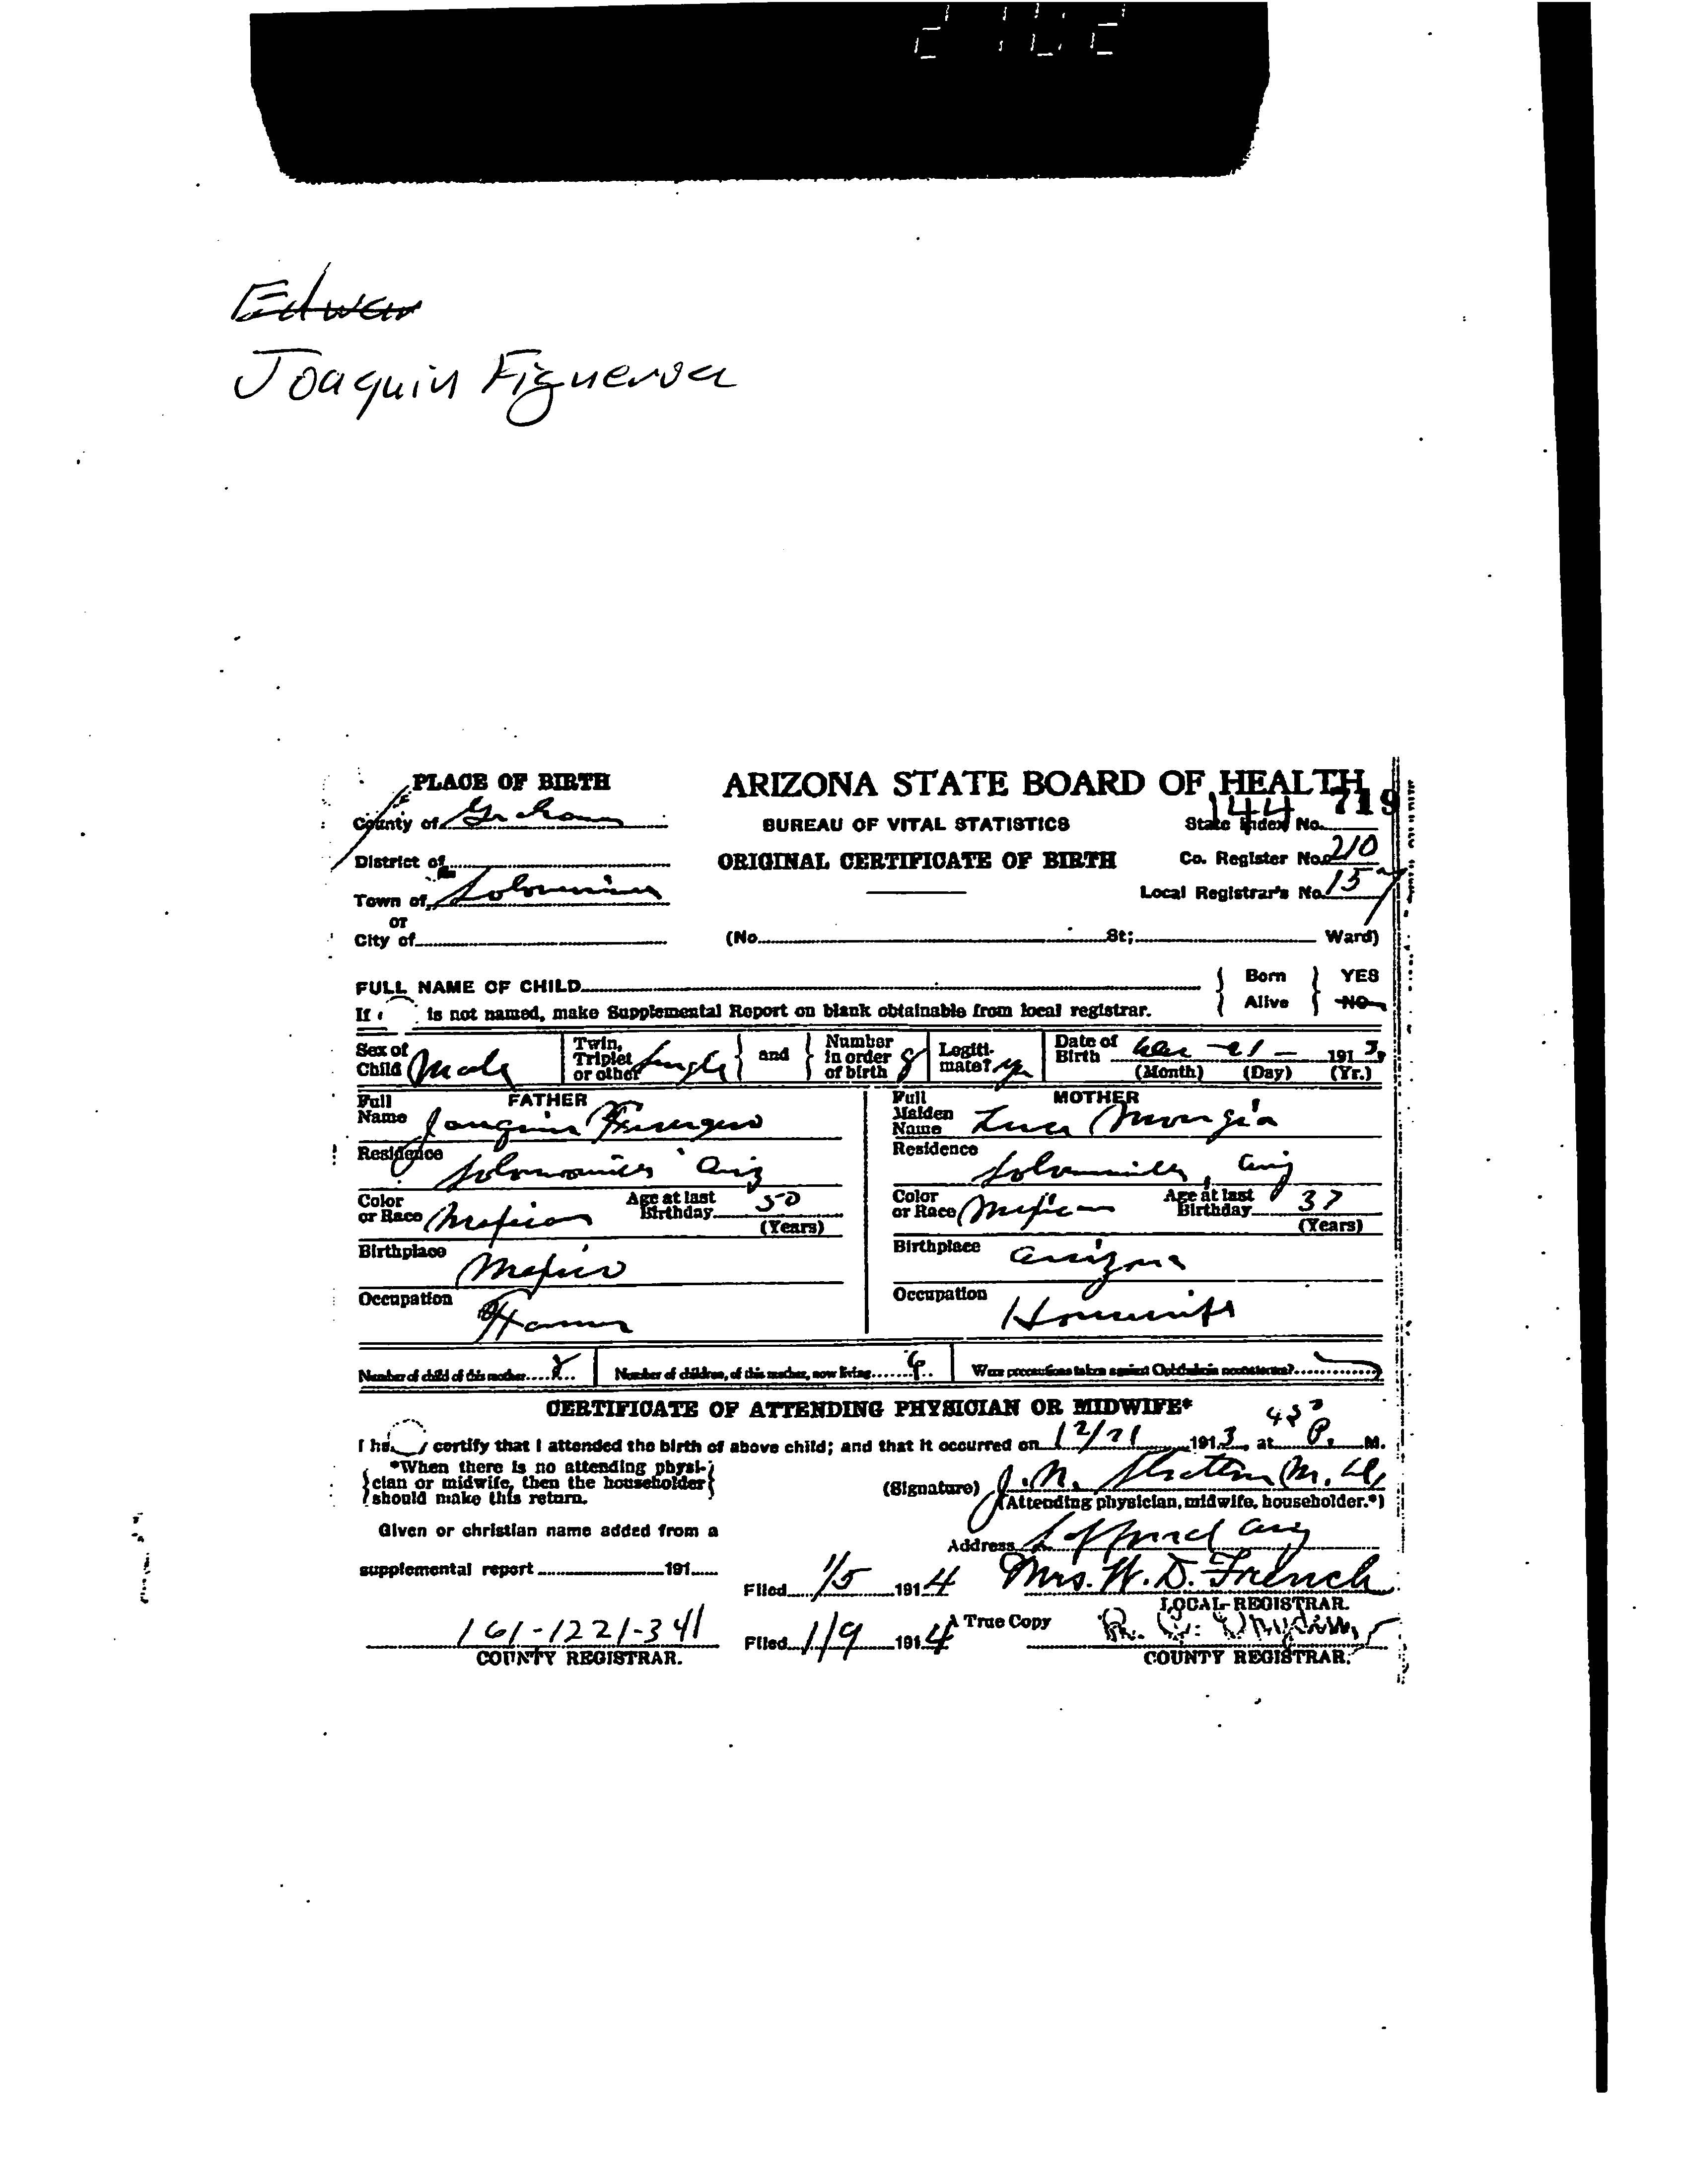 Edwar
Joaquin Figueroa
PLACE OF BIRTH
ARIZONA STATE BOARD OF HEALTH
719
County of Graham
BUREAU OF VITAL STATISTICS
State Index No. 144
District of
ORIGINAL CERTIFICATE OF BIRTH
Co. Register No. 210
Town of
Local Registrar's No. 15
or
City of
(No. St; Ward)
FULL NAME OF CHILD
Born Alive YES NO
is not named, make Supplemental Report on blank obtainable from local registrar.
Sex of Child Male
Twin, Triplet or other Single
and
Number in order of birth 8
Legitimate?
Date of Birth Dec 21 1913
(Month) (Day) (Yr.)
FATHER
Full Name Joaquin
Residence Ariz
Color or Race Mexican
Age at last Birthday 50
(Years)
Birthplace Mexico
Occupation Farmer
MOTHER
Full Maiden Name
Residence
Color or Race Mexican
Age at last Birthday 37
(Years)
Birthplace Arizona
Occupation Housewife
Number of child of this mother 8
Number of children, of this mother, now living
Were precautions taken against Ophthalmia neonatorum?
CERTIFICATE OF ATTENDING PHYSICIAN OR MIDWIFE*
certify that I attended the birth of above child; and that it occurred on 12/21 1913, at P. M.
*When there is no attending physi-
cian or midwife, then the householder
should make this return.
(Signature) J. N. Stratton M.D.
(Attending physician, midwife, householder.*)
Given or christian name added from a
Address Safford Ariz
supplemental report 191
Filed 1/5 1914
Mrs. W. D. French
LOCAL REGISTRAR.
161-1221-341
COUNTY REGISTRAR.
Filed 1/9 1914
A True Copy
COUNTY REGISTRAR.